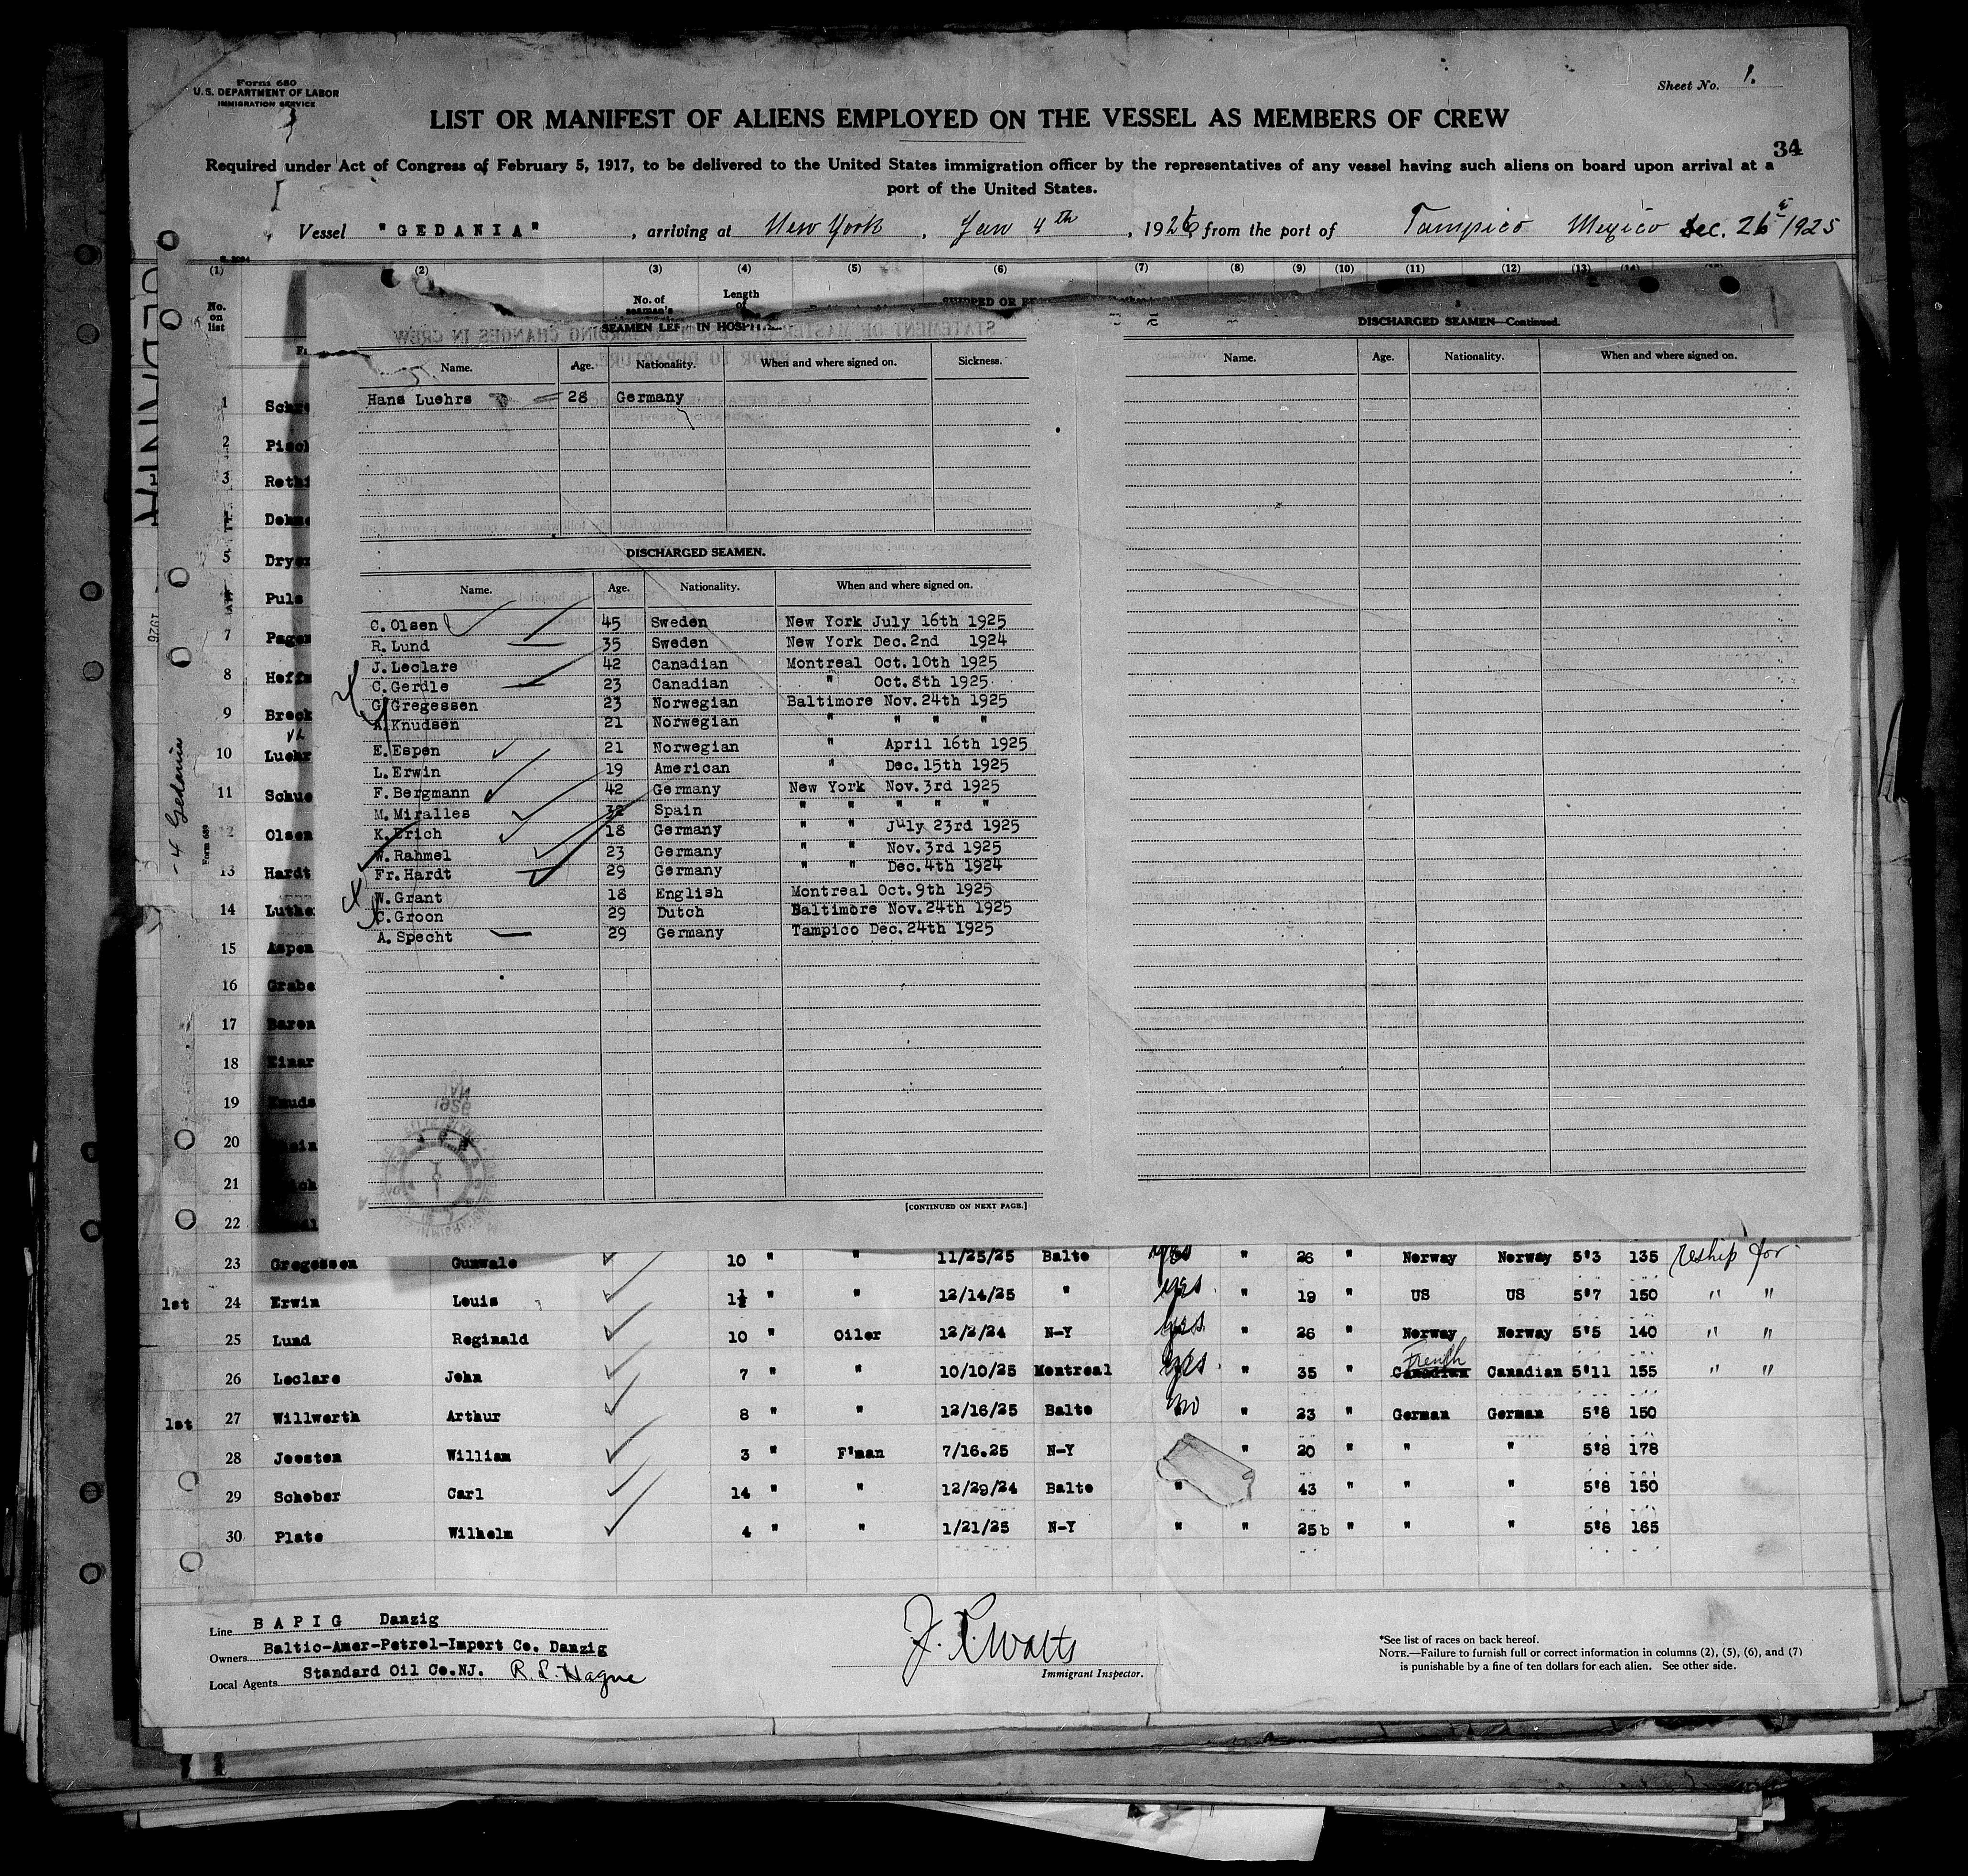 Form 680
U.S. DEPARTMENT OF LABOR
IMMIGRATION SERVICE
Sheet No. 1.
LIST OR MANIFEST OF ALIENS EMPLOYED ON THE VESSEL AS MEMBERS OF CREW
34
Required under Act of Congress of February 5, 1917, to be delivered to the United States immigration officer by the representatives of any vessel having such aliens on board upon arrival at a
port of the United States.
Vessel "GEDANIA", arriving at New York, Jan 4th, 1926 from the port of Tampico Mexico Dec. 26th 1925
(1) (2) (3) (4) (5) (6) (7) (8) (9) (10) (11) (12) (13)
No. on list
No. of seaman's
Length of
SEAMEN LEFT IN HOSPITAL
Name. Age. Nationality. When and where signed on. Sickness.
Hans Luehrs 28 Germany
DISCHARGED SEAMEN.
Name. Age. Nationality. When and where signed on.
C. Olsen 45 Sweden New York July 16th 1925
R. Lund 35 Sweden New York Dec. 2nd 1924
J. Leclare 42 Canadian Montreal Oct. 10th 1925
C. Gerdle 23 Canadian " Oct. 8th 1925
G. Gregessen 23 Norwegian Baltimore Nov. 24th 1925
A. Knudsen 21 Norwegian " " " "
E. Espen 21 Norwegian " April 16th 1925
L. Erwin 19 American " Dec. 15th 1925
F. Bergmann 42 Germany New York Nov. 3rd 1925
M. Miralles 32 Spain " " " " "
K. Erich 18 Germany " " July 23rd 1925
W. Rahmel 23 Germany " " Nov. 3rd 1925
Fr. Hardt 29 Germany " " Dec. 4th 1924
W. Grant 18 English Montreal Oct. 9th 1925
C. Groon 29 Dutch Baltimore Nov. 24th 1925
A. Specht 29 Germany Tampico Dec. 24th 1925
[CONTINUED ON NEXT PAGE.]
DISCHARGED SEAMEN—Continued.
Name. Age. Nationality. When and where signed on.
1 Schr
2 Pisc
3 Reth
Dehm
5 Dryer
Puls
7 Pagen
8 Hoffm
9 Breck
10 Luehr
11 Schue
12 Olsen
13 Hardt
14 Luthe
15 Aspen
16 Grabe
17 Baren
18 Einar
19 Knuds
20
21
22
23 Gregessen Gunwale 10 " " 11/25/25 Balto yes " 26 " Norway Norway 5'3 135 Reship for
1st 24 Erwin Louis 1½ " " 12/14/25 " yes " 19 " US US 5'7 150 " "
25 Lund Reginald 10 " Oiler 12/2/24 N-Y yes " 26 " Norway Norway 5'5 140 " "
26 Leclare John 7 " " 10/10/25 Montreal yes " 35 " Canadian French Canadian 5'11 155 " "
1st 27 Willwerth Arthur 8 " " 12/16/25 Balto no " 23 " German German 5'8 150
28 Joesten William 3 " F'man 7/16.25 N-Y " 20 " " " 5'8 178
29 Schober Carl 14 " " 12/29/24 Balto " " 43 " " " 5'8 150
30 Plate Wilhelm 4 " " 1/21/25 N-Y " " 25b " " " 5'8 165
Line BAPIG Danzig
Owners Baltic-Amer-Petrol-Import Co. Danzig
Local Agents Standard Oil Co.NJ. R. L. Hague
Immigrant Inspector.
*See list of races on back hereof.
NOTE.—Failure to furnish full or correct information in columns (2), (5), (6), and (7)
is punishable by a fine of ten dollars for each alien. See other side.
Gedania
Form 680